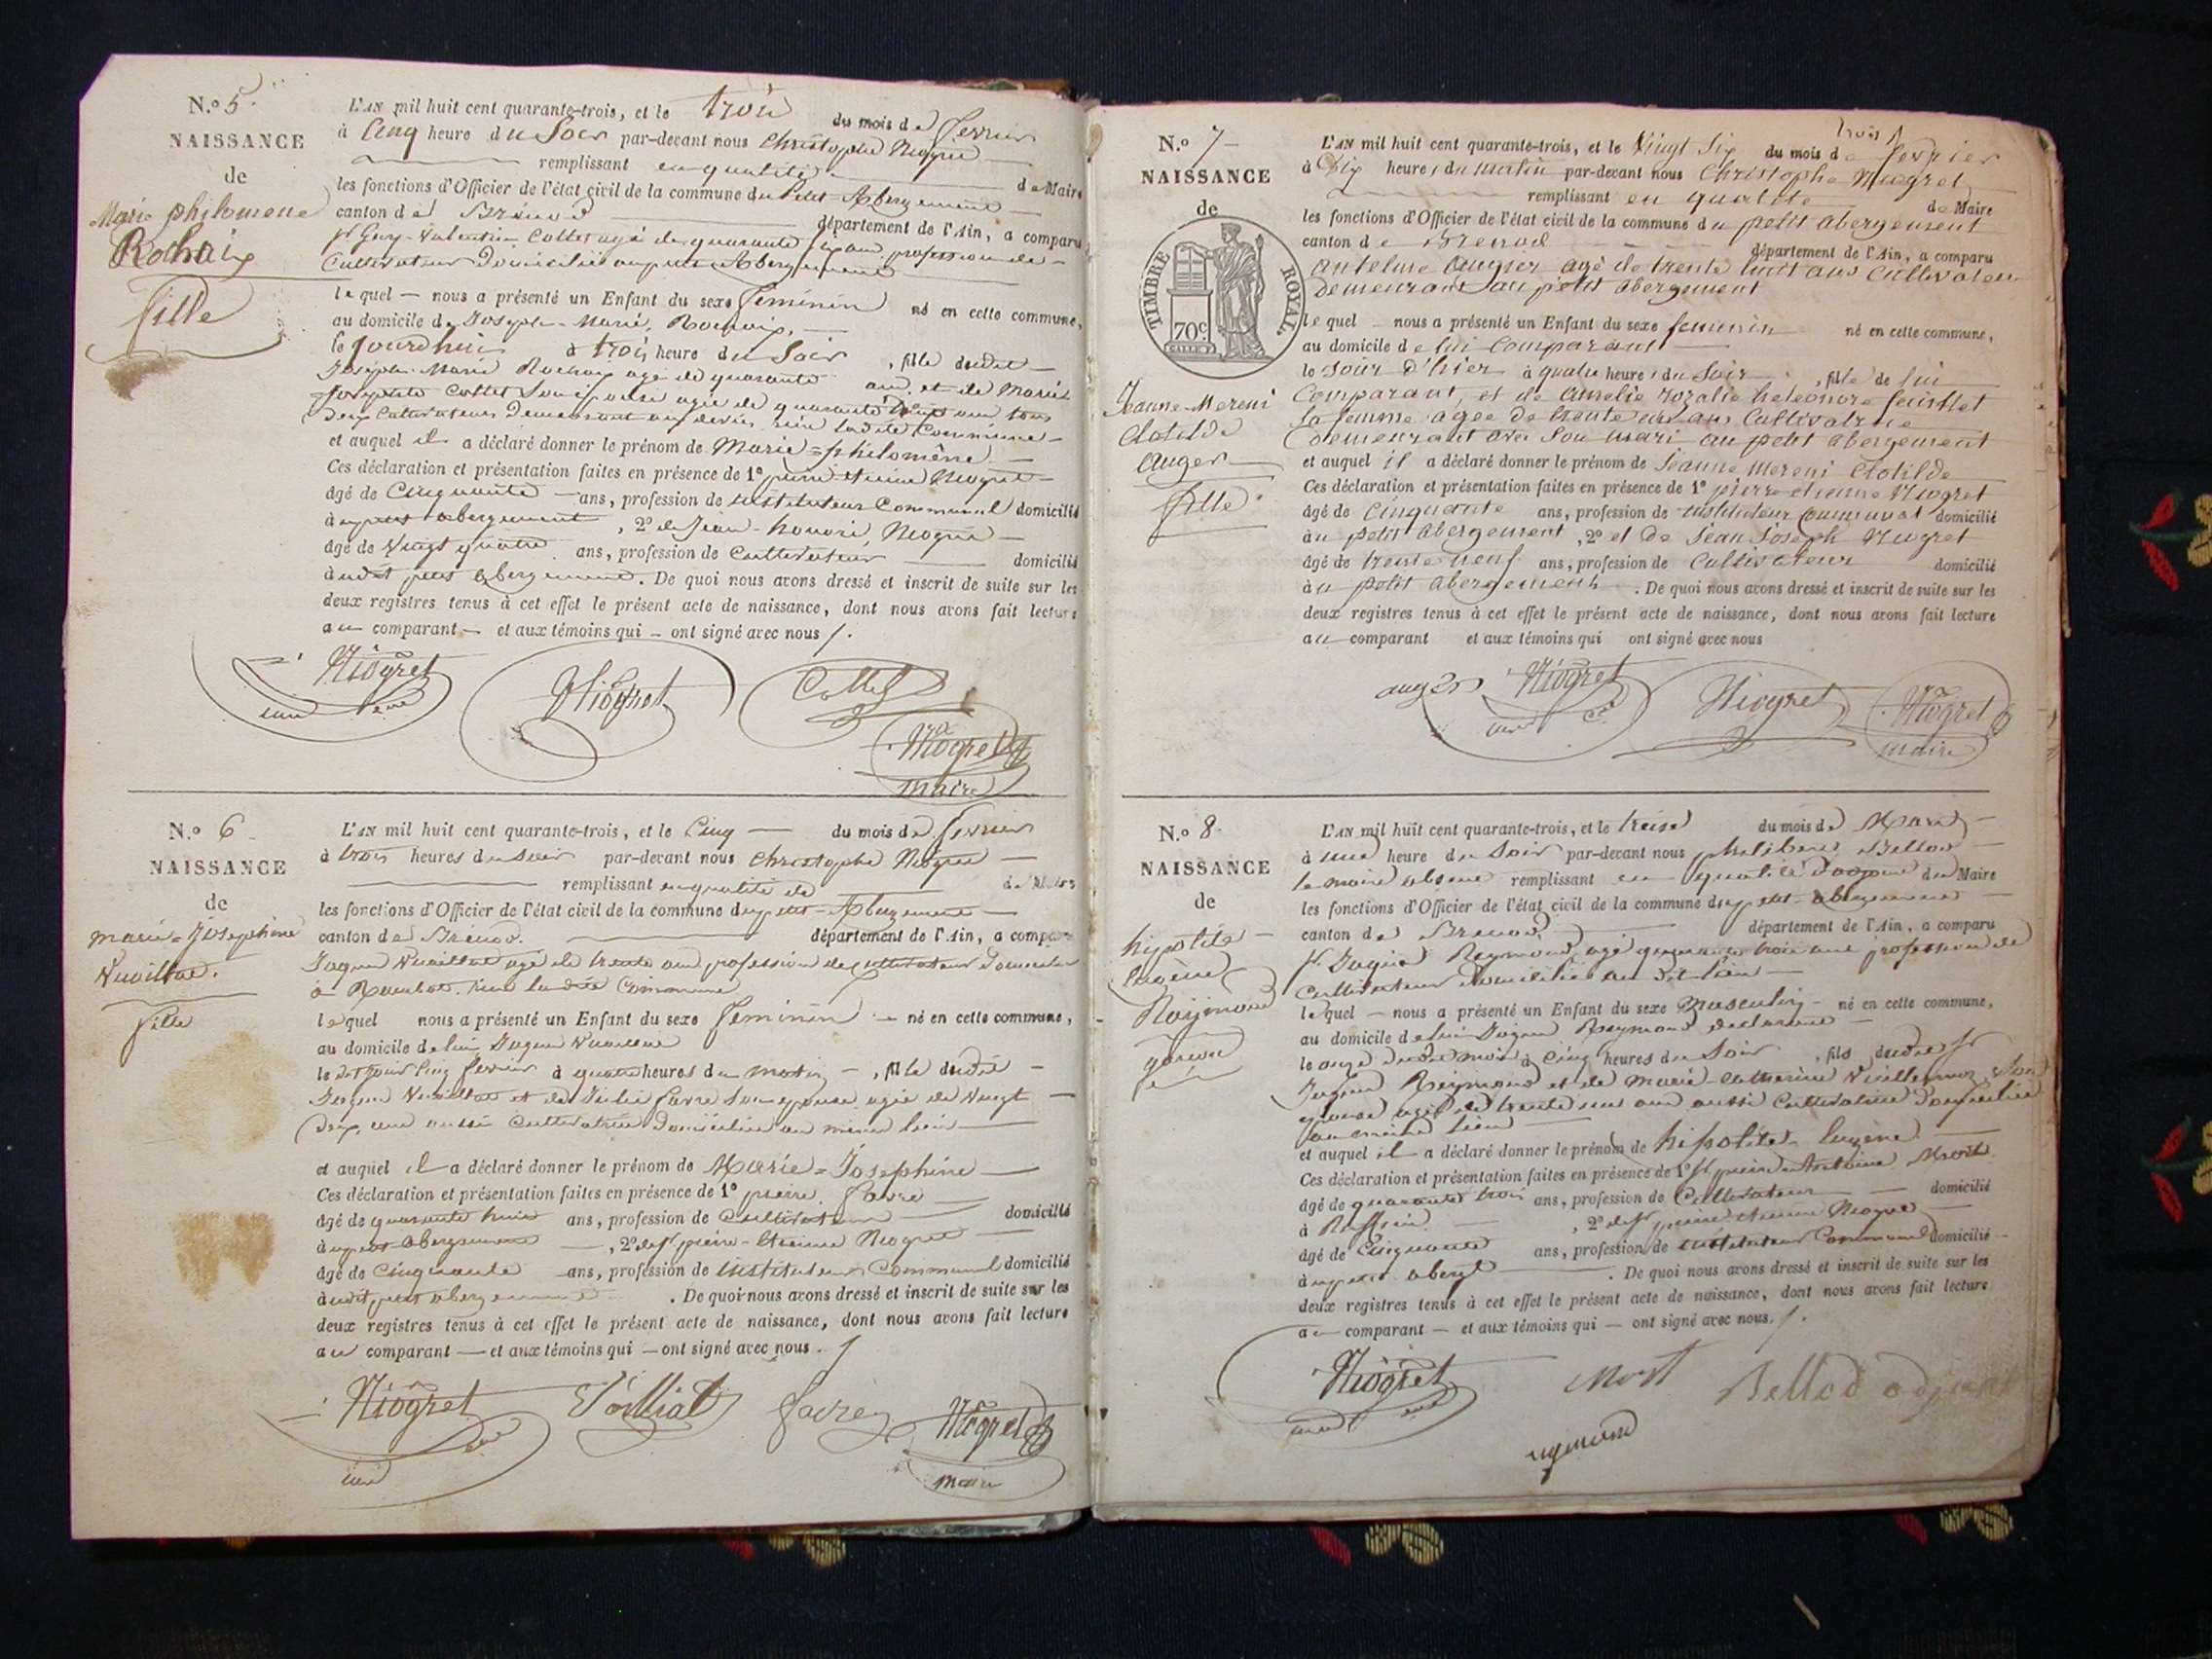 N.º 5.
NAISSANCE
de
Marie philomene
Rochaix
fille
L'AN mil huit cent quarante-trois, et le trois du mois de fevrier
à Cinq heure du Soir par-devant nous Christophe Niogret
remplissant en qualité de Maire
les fonctions d'Officier de l'état civil de la commune du Petit-Abergement
canton de Brénod département de l'Ain, a comparu
Sr Guy-Valentin Collet agé de quarante ans profession de
Cultivateur domicilié au petit Abergement
lequel nous a présenté un Enfant du sexe féminin né en cette commune,
au domicile de Joseph-Marie Rochaix,
le jourdhui à trois heure du Soir, fille dudit
Joseph-Marie Rochaix agé de quarante ans et de Marie
Josephte Collet Son épouse agée de quarante ans tous
Deux Cultivateurs demeurant ladite Commune
et auquel il a déclaré donner le prénom de Marie=philomène
Ces déclaration et présentation faites en présence de 1º pierre etienne Niogret
âgé de Cinquante ans, profession de instituteur Communal domicilié
au petit abergement, 2º de Jean-honoré Niogret
âgé de Vingt quatre ans, profession de Cultivateur domicilié
audit petit abergement. De quoi nous avons dressé et inscrit de suite sur les
deux registres tenus à cet effet le présent acte de naissance, dont nous avons fait lecture
au comparant et aux témoins qui ont signé avec nous
Niogret Niogret Collet
Niogret
maire
N.º 6
NAISSANCE
de
marie=Josephine
Vuaillat.
fille
L'AN mil huit cent quarante-trois, et le Cinq du mois de fevrier
à trois heures du soir par-devant nous Christophe Niogret
remplissant en qualité de de Maire
les fonctions d'Officier de l'état civil de la commune du petit-Abergement
canton de Brénod. département de l'Ain, a comparu
Jaques Vuaillat agé de trente ans profession de Cultivateur Domicilié
à ladite Commune
lequel nous a présenté un Enfant du sexe féminin né en cette commune,
au domicile de lui Jaques Vuaillat
le dit jour Cinq fevrier à quatre heures du matin, fille dudit
Jaques Vuaillat et de Julie favre Son epouse agée de Vingt
Deux ans aussi Cultivatrice Domiciliée au même lieu
et auquel il a déclaré donner le prénom de Marie=Josephine
Ces déclaration et présentation faites en présence de 1º pierre favre
âgé de quarante huit ans, profession de Cultivateur domicilié
au petit abergement, 2º de Sr pierre-Etienne Niogret
âgé de Cinquante ans, profession de instituteur Communal domicilié
audit petit abergement. De quoi nous avons dressé et inscrit de suite sur les
deux registres tenus à cet effet le présent acte de naissance, dont nous avons fait lecture
au comparant et aux témoins qui ont signé avec nous.
Niogret favre Niogret
maire
N.º 7
NAISSANCE
de
TIMBRE ROYAL.
70c
Jeanne Mereni
Clotilde
Auger
fille
trois
L'AN mil huit cent quarante-trois, et le Vingt Six du mois de fevrier
à Dix heures du matin par-devant nous Christophe Niogret
remplissant en qualité de Maire
les fonctions d'Officier de l'état civil de la commune du petit abergement
canton de Brenod département de l'Ain, a comparu
Antelme Augier agé de trente huit ans Cultivateur
Demeurant au petit abergement
lequel nous a présenté un Enfant du sexe femenin né en cette commune,
au domicile de lui Comparant
le jour d'hier à quatre heures du Soir, fille de lui
Comparant, et de Amelie rozalie heleonore
Sa femme agee de trente ans Cultivatrice
Demeurant avec Son mari au petit abergement
et auquel il a déclaré donner le prénom de Jeanne Mereni Clotilde
Ces déclaration et présentation faites en présence de 1º pierre etienne Niogret
âgé de Cinquante ans, profession de instituteur communal domicilié
au petit abergement, 2º et de Jean Joseph Niogret
âgé de trente neuf ans, profession de Cultivateur domicilié
au petit abergement. De quoi nous avons dressé et inscrit de suite sur les
deux registres tenus à cet effet le présent acte de naissance, dont nous avons fait lecture
au comparant et aux témoins qui ont signé avec nous
auger Niogret Niogret Niogret
maire
N.º 8
NAISSANCE
de
hipolite
Eugène
Raymond
garcon
L'AN mil huit cent quarante-trois, et le treise du mois de Mars
à une heure du Soir par-devant nous philibert Bellod
le maire absent remplissant en qualité d'adjoint du Maire
les fonctions d'Officier de l'état civil de la commune du petit-abergement
canton de Brenod département de l'Ain, a comparu
Sr Jaques Reymond agé quarante trois ans profession de
Cultivateur domicilié au dit lieu
lequel nous a présenté un Enfant du sexe Masculin né en cette commune,
au domicile de lui Jaques Reymond declarant
le onze dudit mois à Cinq heures du Soir, fils dudit Sr
Jaques Reymond et de Marie-Catherine Vuillermoz Son
epouse agée de trente ans aussi Cultivatrice Domiciliée
au même lieu
et auquel il a déclaré donner le prénom de hipolite-Eugène
Ces déclaration et présentation faites en présence de 1º Sr pierre-Antoine
âgé de quarante trois ans, profession de Cultivateur domicilié
à, 2º de Sr pierre etienne Niogret
âgé de Cinquante ans, profession de instituteur Communal domicilié
au petit aberg.t. De quoi nous avons dressé et inscrit de suite sur les
deux registres tenus à cet effet le présent acte de naissance, dont nous avons fait lecture
au comparant et aux témoins qui ont signé avec nous.
Niogret Bellod adjoint